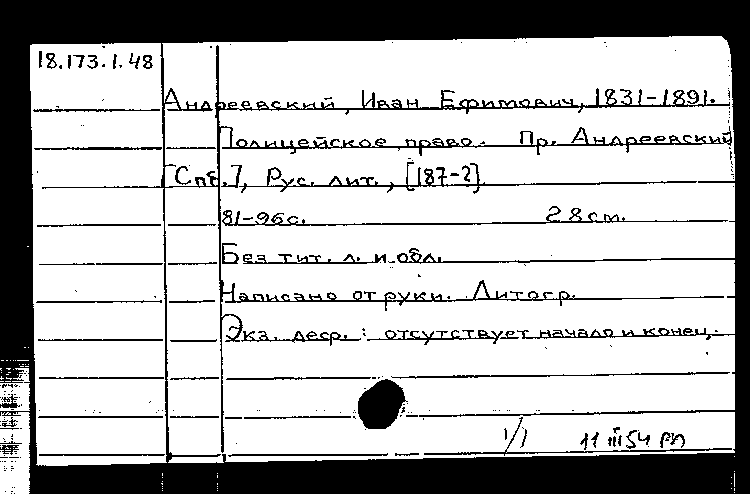 18.173.1.48
Андреевский, Иван Ефимович, 1831-1891.
Полицейское право. Пр. Андреевский
[Спб.], Рус. лит., [187-?].
81-96с. 28см.
Без тит. л. и обл.
Написано от руки. Литогр.
Экз. деф.: отсутствует начало и конец.
1/1 11 III 54 РП